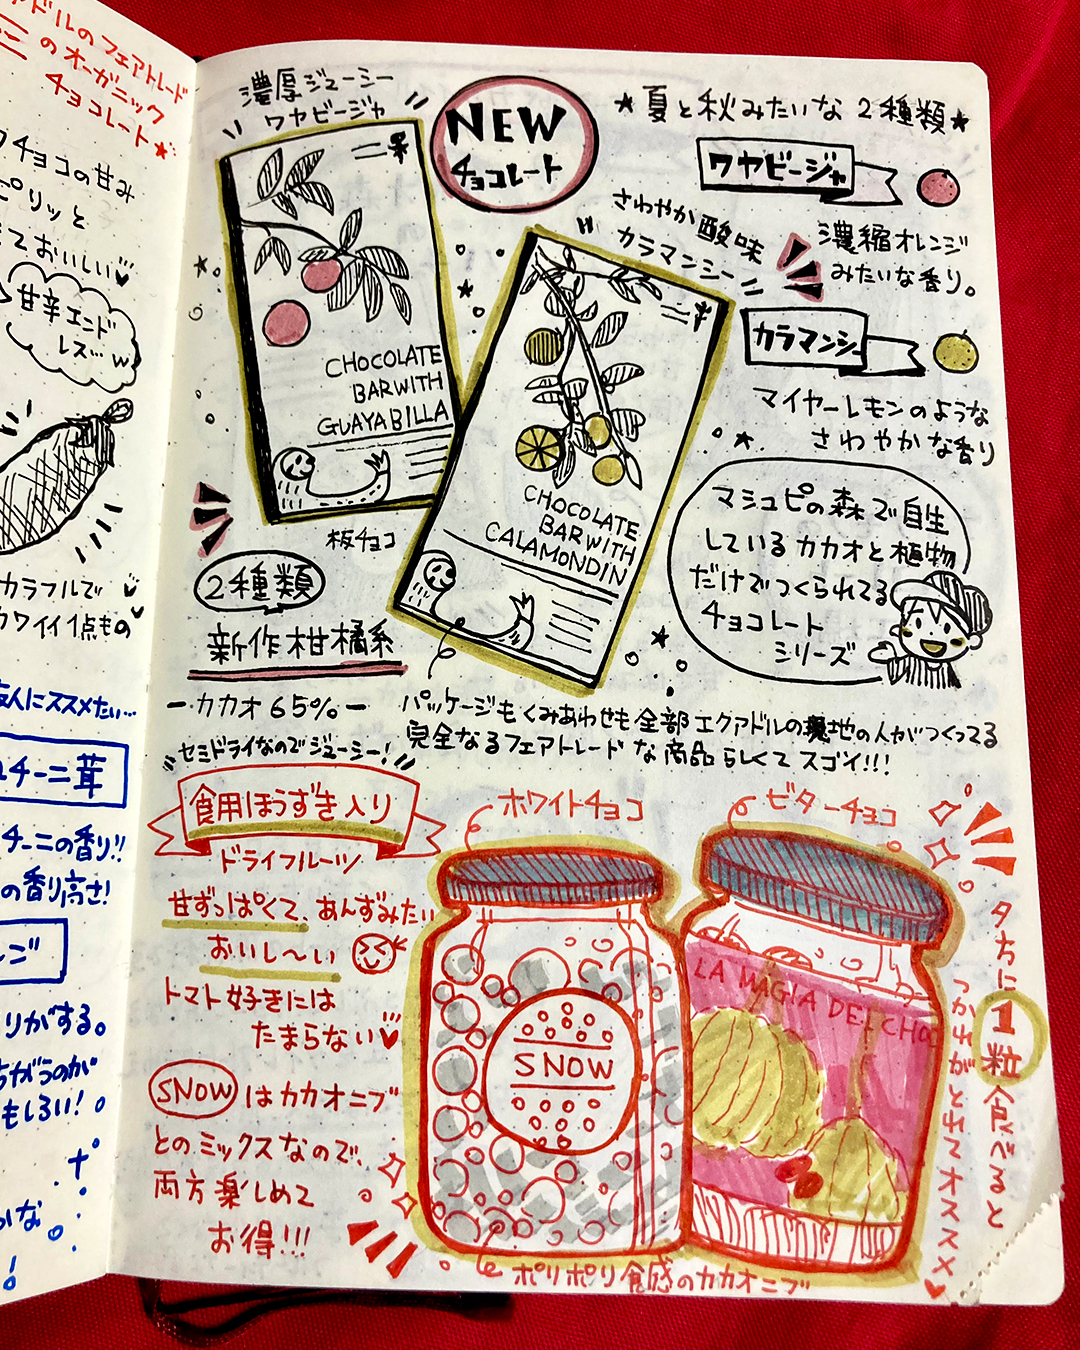 アドルのフェアトレード
ニのオーガニック
チョコレート★
チョコの甘み
ピリッと
ておいしい♥
甘辛エンド
レスw
カラフルで
カワイイ1点もの
友人にススメたい…
チーニ茸
チーニの香り!!
の香り高さ!
りがする。
ちがうのが
もしろい!
かな。
!
濃厚ジューシー
ワヤビージャ
NEW
チョコレート
★夏と秋みたいな2種類★
ワヤビージャ
濃縮オレンジ
みたいな香り。
さわやか酸味
カラマンシー
カラマンシー
マイヤーレモンのような
さわやかな香り
CHOCOLATE
BAR WITH
GUAYABILLA
CHOCOLATE
BAR WITH
CALAMONDIN
マシュピの森で自生
しているカカオと植物
だけでつくられてる
チョコレート
シリーズ
板チョコ
2種類
新作柑橘系
ーカカオ65%ー
パッケージもくみあわせも全部エクアドルの現地の人がつくってる
完全なるフェアトレードな商品らしくてスゴイ!!!
"セミドライなのでジューシー!"
食用ほうずき入り
ドライフルーツ
甘ずっぱくて、あんずみたい
おいし〜い
トマト好きには
たまらない♥
SNOWはカカオニブ
とのミックスなので、
両方楽しめて
お得!!!
ホワイトチョコ
ビターチョコ
SNOW
LA MAGIA DEL CHOC
ポリポリ食感のカカオニブ
夕方に1粒食べると
つかれがとれてオススメ♥